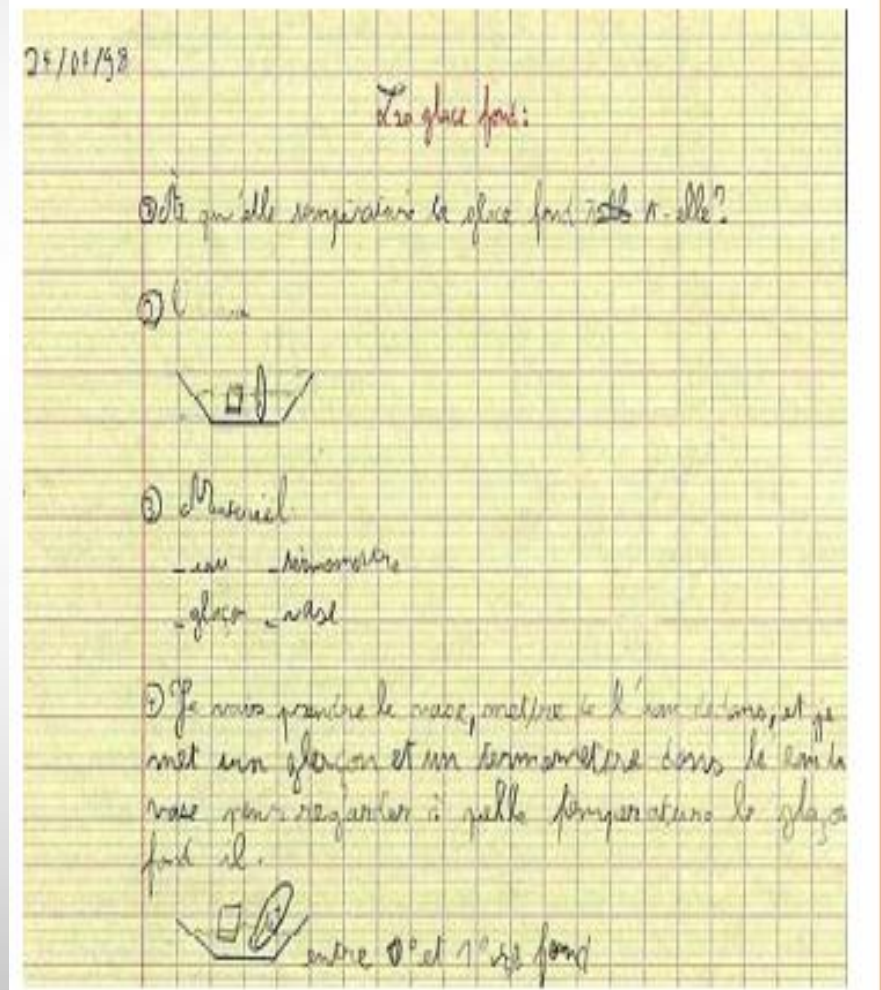 La glace fond:
① A qu'elle température la glace fond t-elle?
②
③ Materiel
- eau - termometre
- glaçon - vase
④ Je vais prendre le vase, mettre de l'eau dedans, et je
met un glaçon et un termometre dans le
vase pour regarder à quelle température le glaçon
fond il.
entre 0° et 1° fond